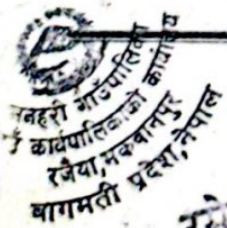 मनहरी गाउँपालिका
कार्यपालिकाको कार्यालय
रजैया, मकवानपुर
बागमती प्रदेश, नेपाल